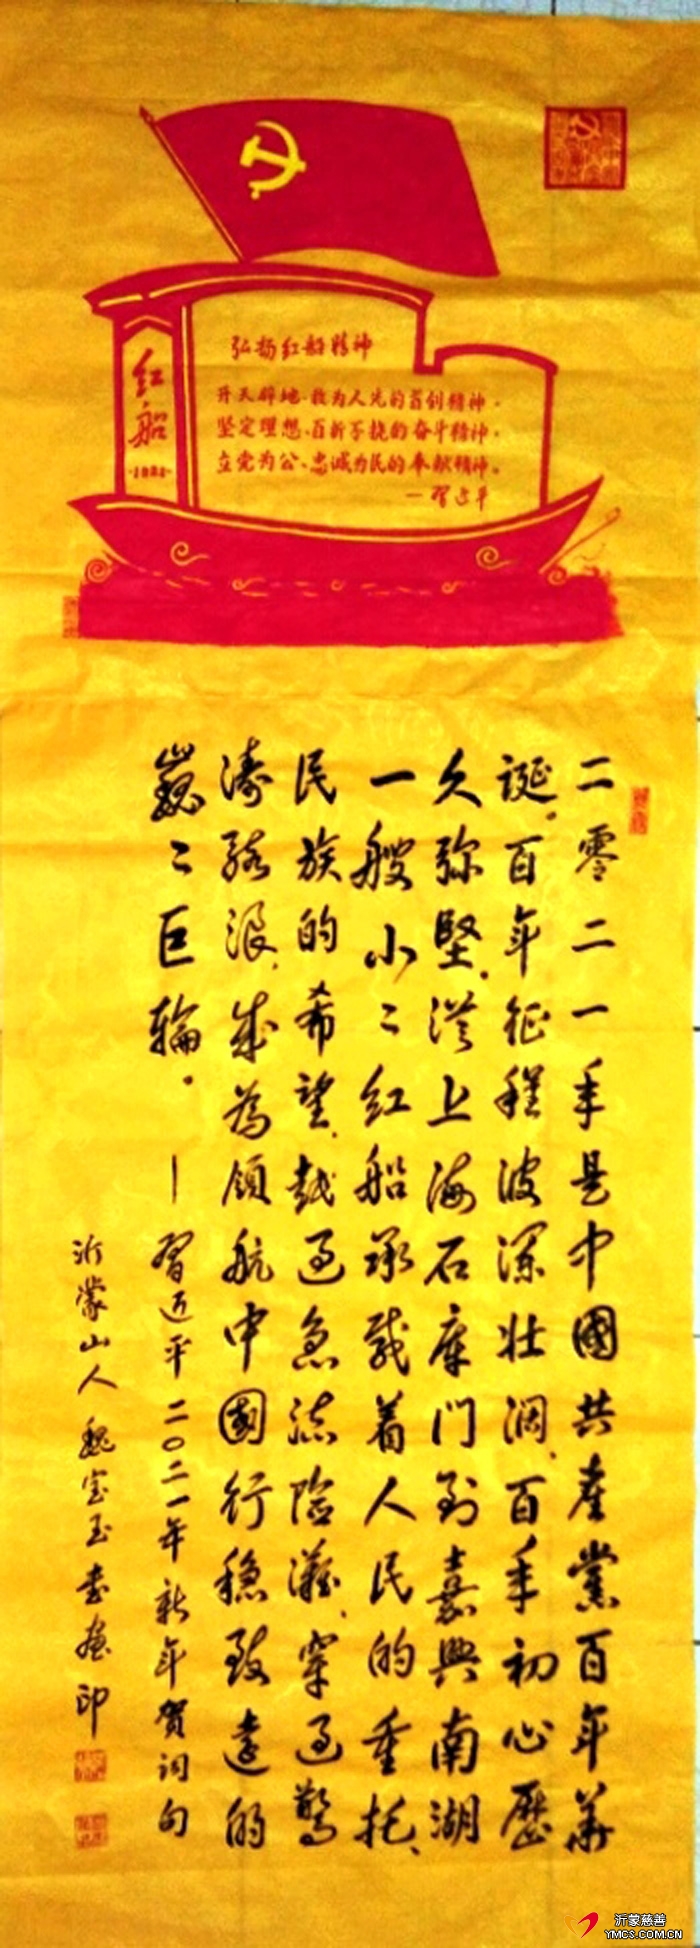 弘扬红船精神
开天辟地、敢为人先的首创精神，
坚定理想、百折不挠的奋斗精神，
立党为公、忠诚为民的奉献精神。
—習近平
红船
1921
二零二一年是中國共産黨百年華
誕。百年征程波瀾壯濶，百年初心歷
久弥堅。從上海石库門到嘉興南湖
一艘小〻红船承载着人民的重托、
民族的希望，越过急流险滩、穿过驚
涛骇浪，成為領航中國行稳致遠的
巍〻巨輪。—習近平二〇二一年新年贺词句
沂蒙山人魏宝玉书画印
沂蒙慈善
YMCS.COM.CN